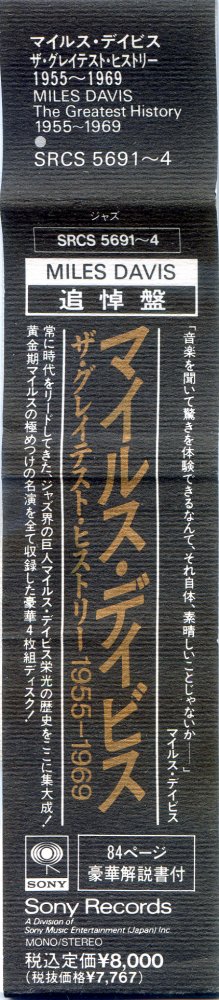 マイルス・デイビス
ザ・グレイテスト・ヒストリー
1955〜1969
MILES DAVIS
The Greatest History
1955〜1969
SRCS 5691〜4
ジャズ
SRCS 5691〜4
MILES DAVIS
追悼盤
「音楽を聞いて驚きを体験できるなんて、それ自体、素晴しいことじゃないか──」
マイルス・デイビス
マイルス・デイビス
ザ・グレイテスト・ヒストリー 1955-1969
常に時代をリードしてきた、ジャズ界の巨人マイルス・デイビス栄光の歴史をここに集大成!
黄金期マイルスの極めつけの名演を全て収録した豪華4枚組ディスク!
SONY
84ページ
豪華解説書付
Sony Records
A Division of
Sony Music Entertainment (Japan) Inc.
MONO/STEREO
税込定価¥8,000
(税抜価格¥7,767)